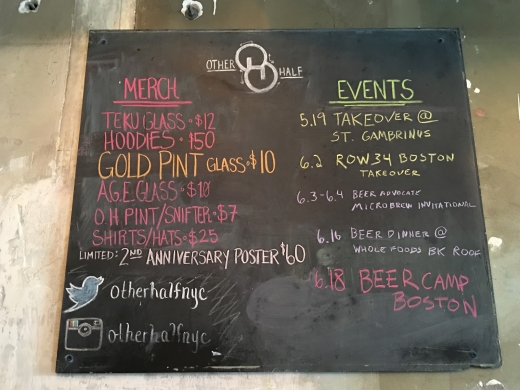 OTHER HALF
MERCH
TEKU GLASS - $12
HOODIES - $50
GOLD PINT GLASS - $10
A.G.E. GLASS - $10
O.H PINT/SNIFTER - $7
SHIRTS/HATS - $25
LIMITED: 2ND ANNIVERSARY POSTER $60
otherhalfnyc
otherhalfnyc
EVENTS
5.19 TAKEOVER @
ST. GAMBRINUS
6.2 ROW 34 BOSTON
TAKEOVER
6.3-6.4 BEER ADVOCATE
MICROBREW INVITATIONAL
6.16 BEER DINNER @
WHOLE FOODS BK ROOF
6.18 BEER CAMP
BOSTON